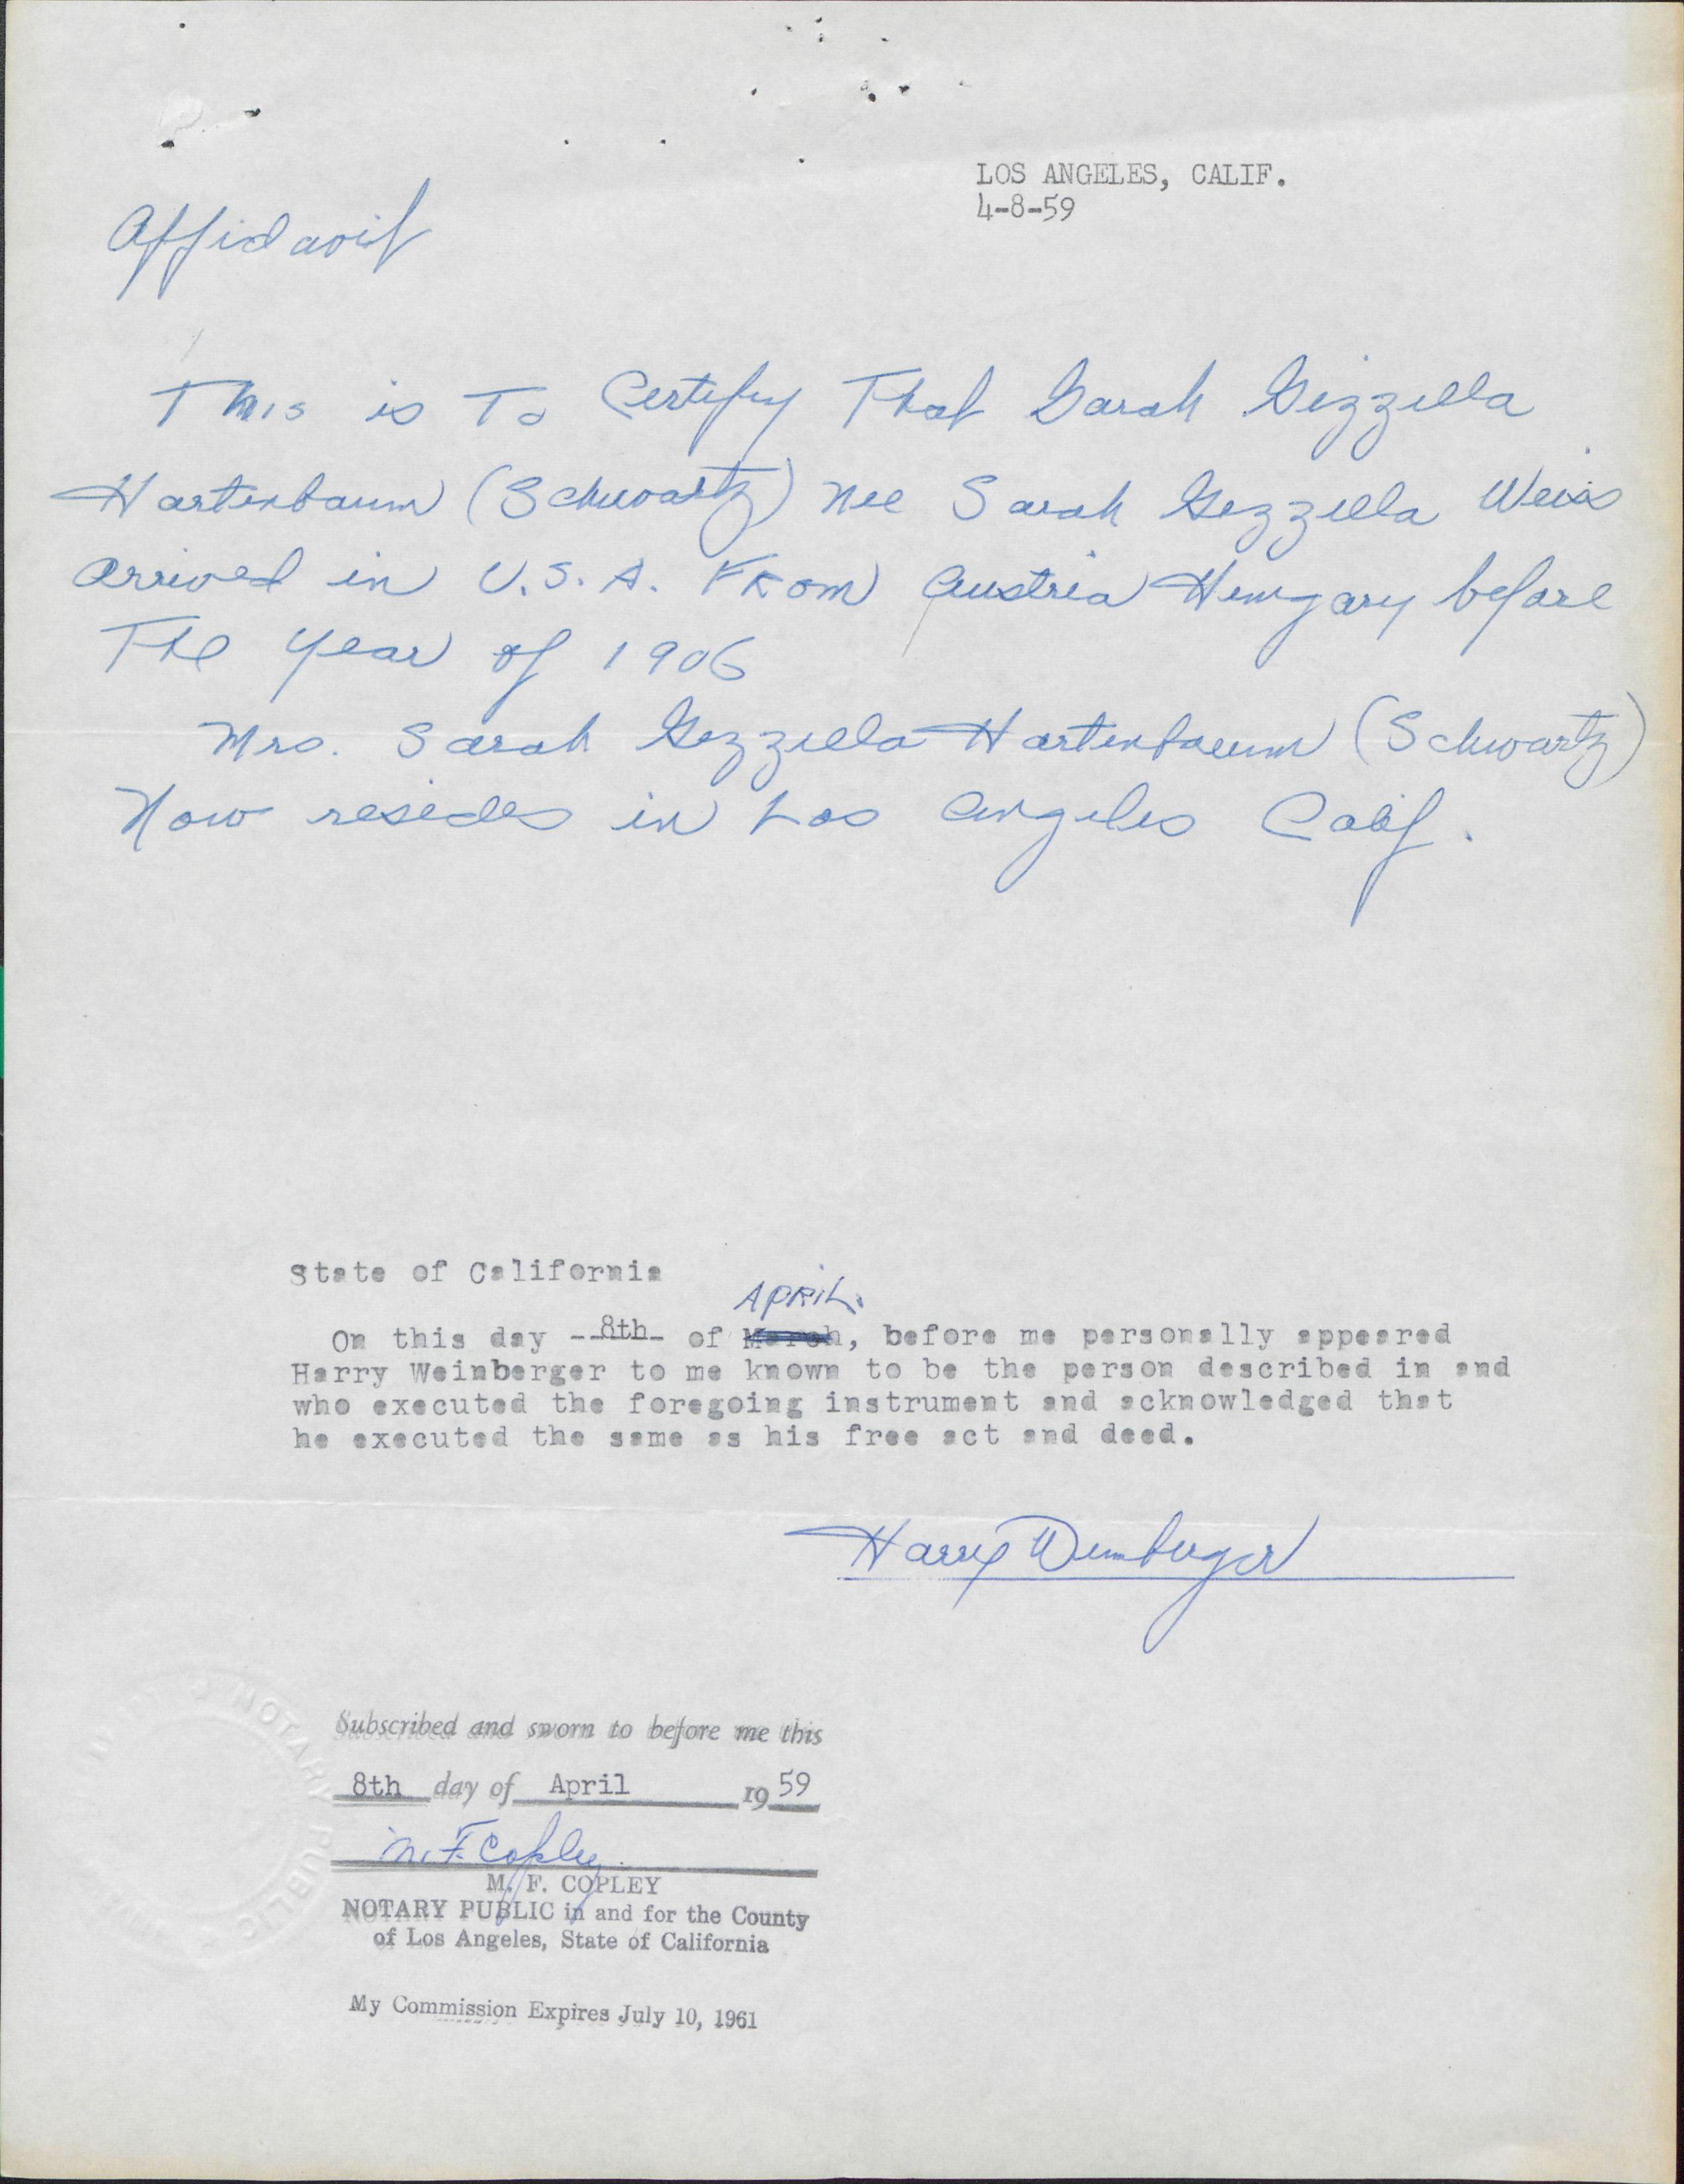 LOS ANGELES, CALIF.
4-8-59
Affidavit
This is To Certify That Sarah Gizzella
Hartenbaum (Schwartz) nee Sarah Gezzella Weiss
arrived in U.S.A. From Austria Hungary before
The year of 1906
Mrs. Sarah Gezzella Hartenbaum (Schwartz)
Now resides in Los Angeles Calif.
State of California
APRIL.
On this day --8th- of March, before me personally appeared
Harry Weinberger to me known to be the person described in and
who executed the foregoing instrument and acknowledged that
he executed the same as his free act and deed.
Harry Weinberger
Subscribed and sworn to before me this
8th day of April 1959
M. F. Copley
M. F. COPLEY
NOTARY PUBLIC in and for the County
of Los Angeles, State of California
My Commission Expires July 10, 1961
NOTARY PUBLIC